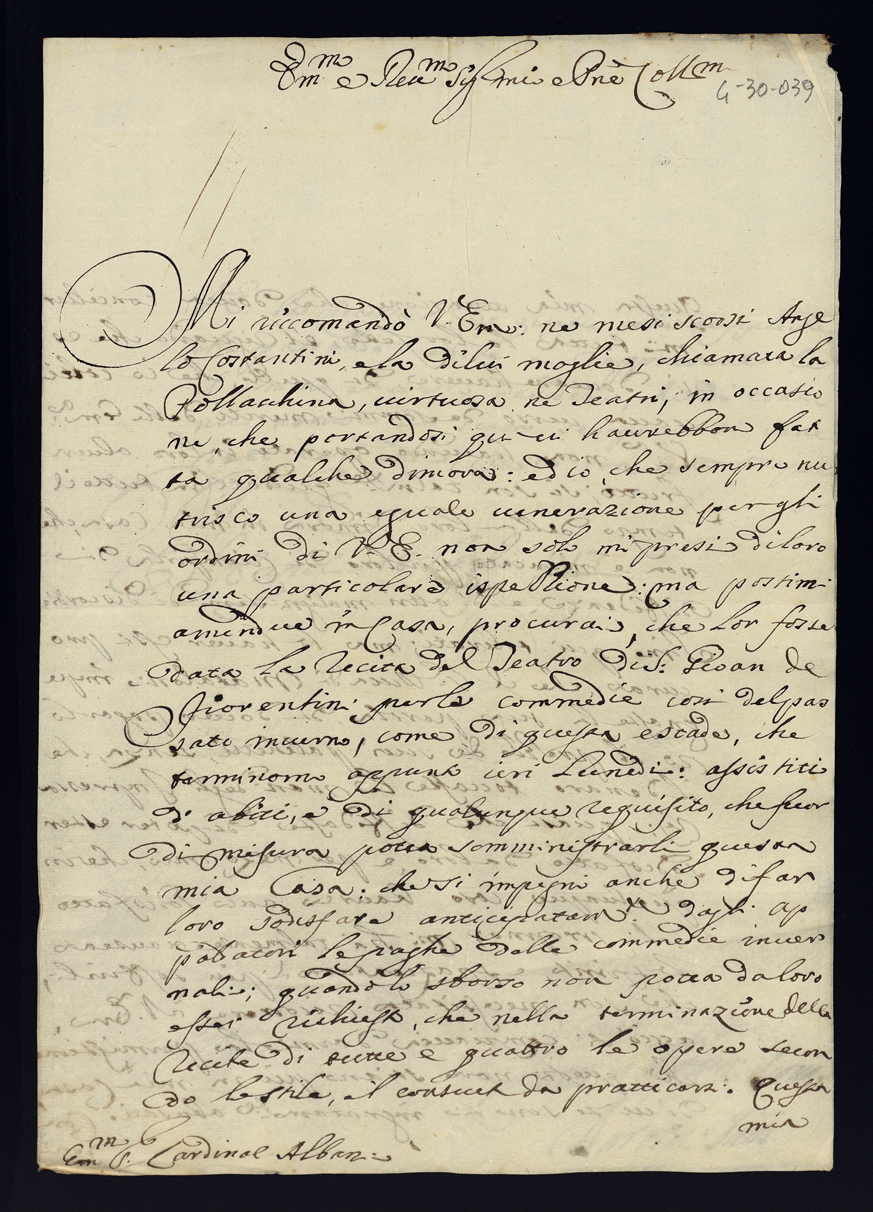 Emo e Reumo Sig mio e Pne Collmo
4-30-039
Mi riccomandò V. Em: ne mesi scorsi Ange
lo Costantini, e la dilui moglie, chiamata la
Pollacchina, uirtuosa ne Teatri, in occasio
ne, che portandosi qu ui haurebbon fat
ta qualche dimora: ed io, che sempre nu
trisco una eguale uenerazione per gli
ordini di V. E. non sol mi presi di loro
una particolare ispettione: ma postim
amendue in Casa, procurai, che lor fosse
data la recita del Teatro di S: Gioan de
Fiorentini per le commedie così del pas
sato inuerno, come di questa estade, che
terminorn appunt ieri Lunedì: assistiti
d' abiti, e di qualunque requisito, che fuor
di misura potea somministrarli questa
mia Casa: che si impegni anche di far
loro sodisfare anticipatamte dagli ap
paltatori le paghe delle commedie inuer
nali; quando lo sborso non potea da loro
esser richiest, che nella terminazione della
recite di tutte e quattro le opere secon
do lo stile, il consuet da pratticarsi. Questa
mia
Emo S. Cardinal Albani